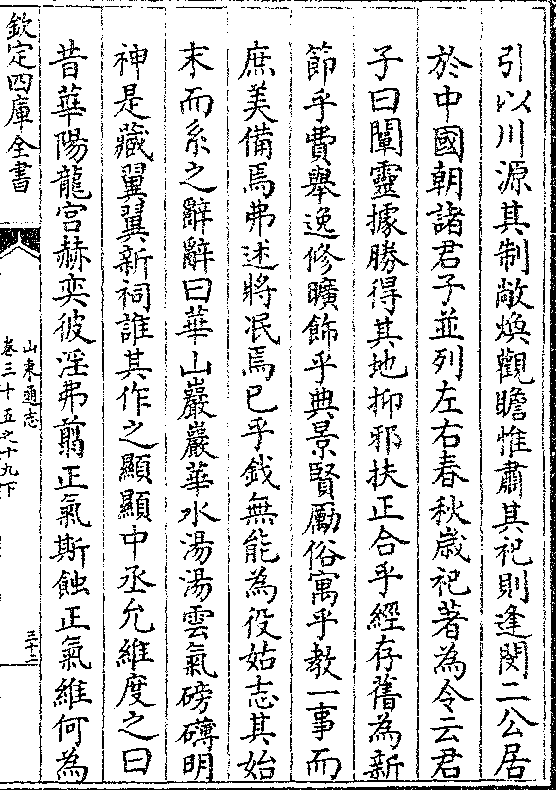 引以川源其制敞煥觀瞻惟肅其祀則逢閔二公居
於中國朝諸君子並列左右春秋歲祀著為令云君
子曰闡靈據勝得其地抑邪扶正合乎經存舊為新
節乎費舉逸修曠飾乎典景賢勵俗寓乎教一事而
庶美備焉弗述將泯焉已乎鉞無能為役姑志其始
末而系之辭辭曰華山巖巖華水湯湯雲氣磅礴明
神是藏翼翼新祠誰其作之顯顯中丞允維度之曰
昔華陽龍宫赫奕彼淫弗翦正氣斯蝕正氣維何為
欽定四庫全書
山東通志
卷三十五之十九下
三十二